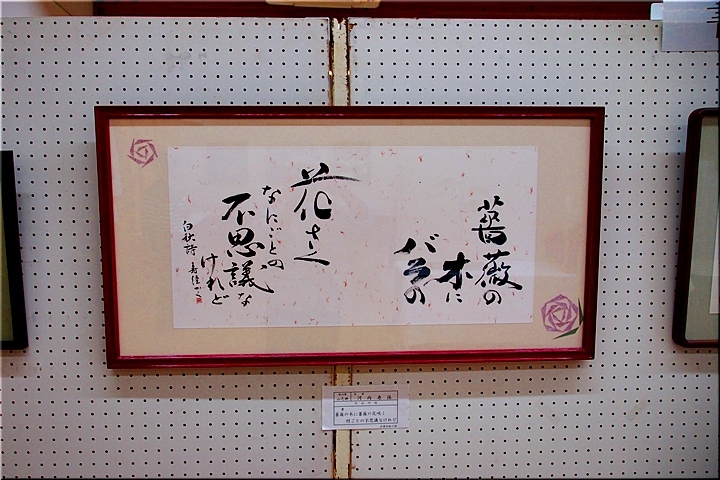 薔薇の
木に
バラの
花さく
なにごとの
不思議な
けれど
白秋詩
薔薇の木に薔薇の花咲く
何ごとの不思議なけれど